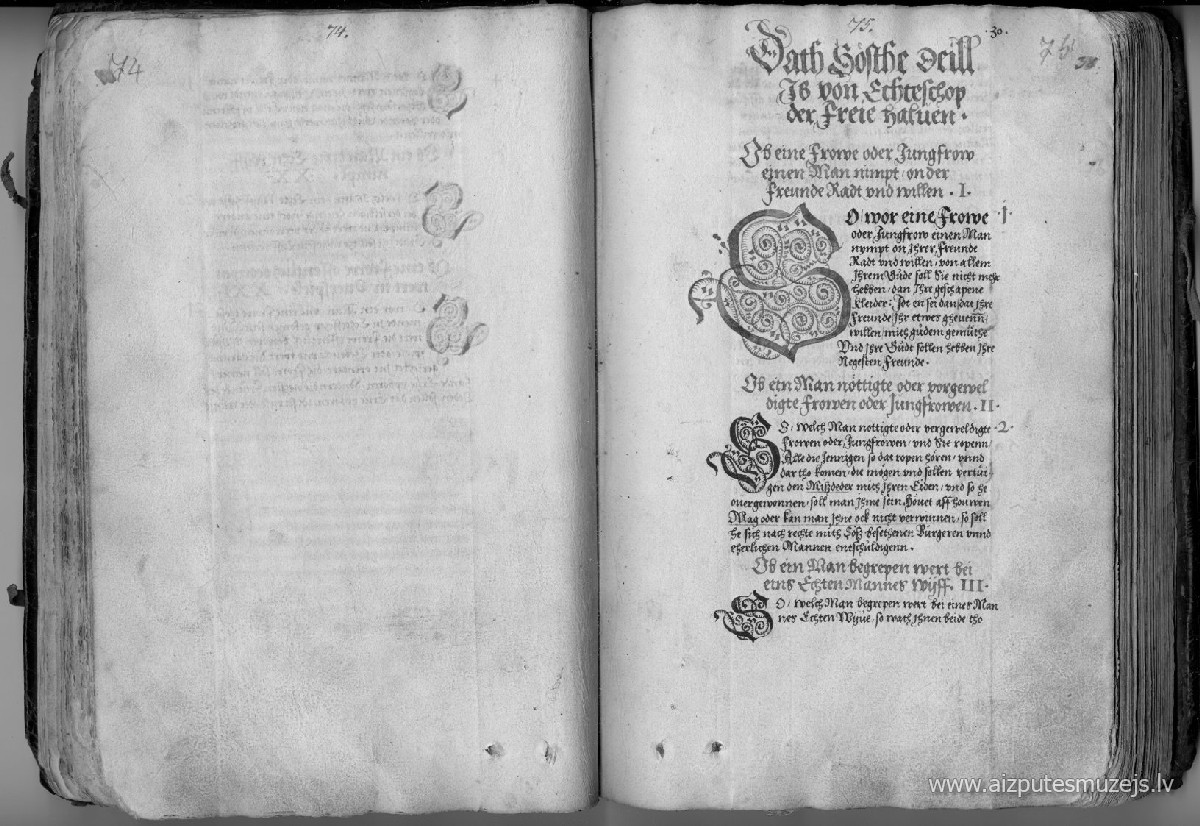 74.
74
75.
30.
75
Dath Sösthe Deill
Is von Echteschop
der Freie halven.
Ob eine Frowe oder Jungfrow
einen Man nimpt on der
Freunde Radt vnd willen. I.
SO wor eine Frowe 1.
oder Jungfrow einen Man
nympt on Ihrer Freunde
Radt vnd willen, von allem
Ihrem Güde soll Sie nicht mehr
hebben, dan Ihre geschapene
Kleider,
Freunde Ihr etwes
willen mith güdem gemüthe
Vnd Ihre Güdt sollen hebben Ihre
Negesten Freunde.
Ob ein Man nöttigte oder vorgewel
digte Frowen oder Jungfrowen. II.
SO welch Man nöttigte oder vergeweldigte 2.
Frowen oder Jungfrowen, vnd Sie ropenn,
Alle die Jennigen so dat ropen hören, vnnd
dar tho komen, die mögen vnd sollen vertüi-
gen den Mißdeder mith Ihren Eiden, vnd so he
ouergewonnen, soll man Ihme sein Höuet aff houwen
Mag oder kan man Ihne ock nicht verwinnen, so soll
he sich nach rechte mith Söß besethenen Burgeren vnnd
eherlichen Mannen entschüldigenn.
Ob ein Man begrepen wert bei
eins Echten Mannes Wyff. III.
SO welch Man begrepen wert bei eines Man
nes Echten Wyue, so wath Ihnen beide tho
www.aizputesmuzejs.lv